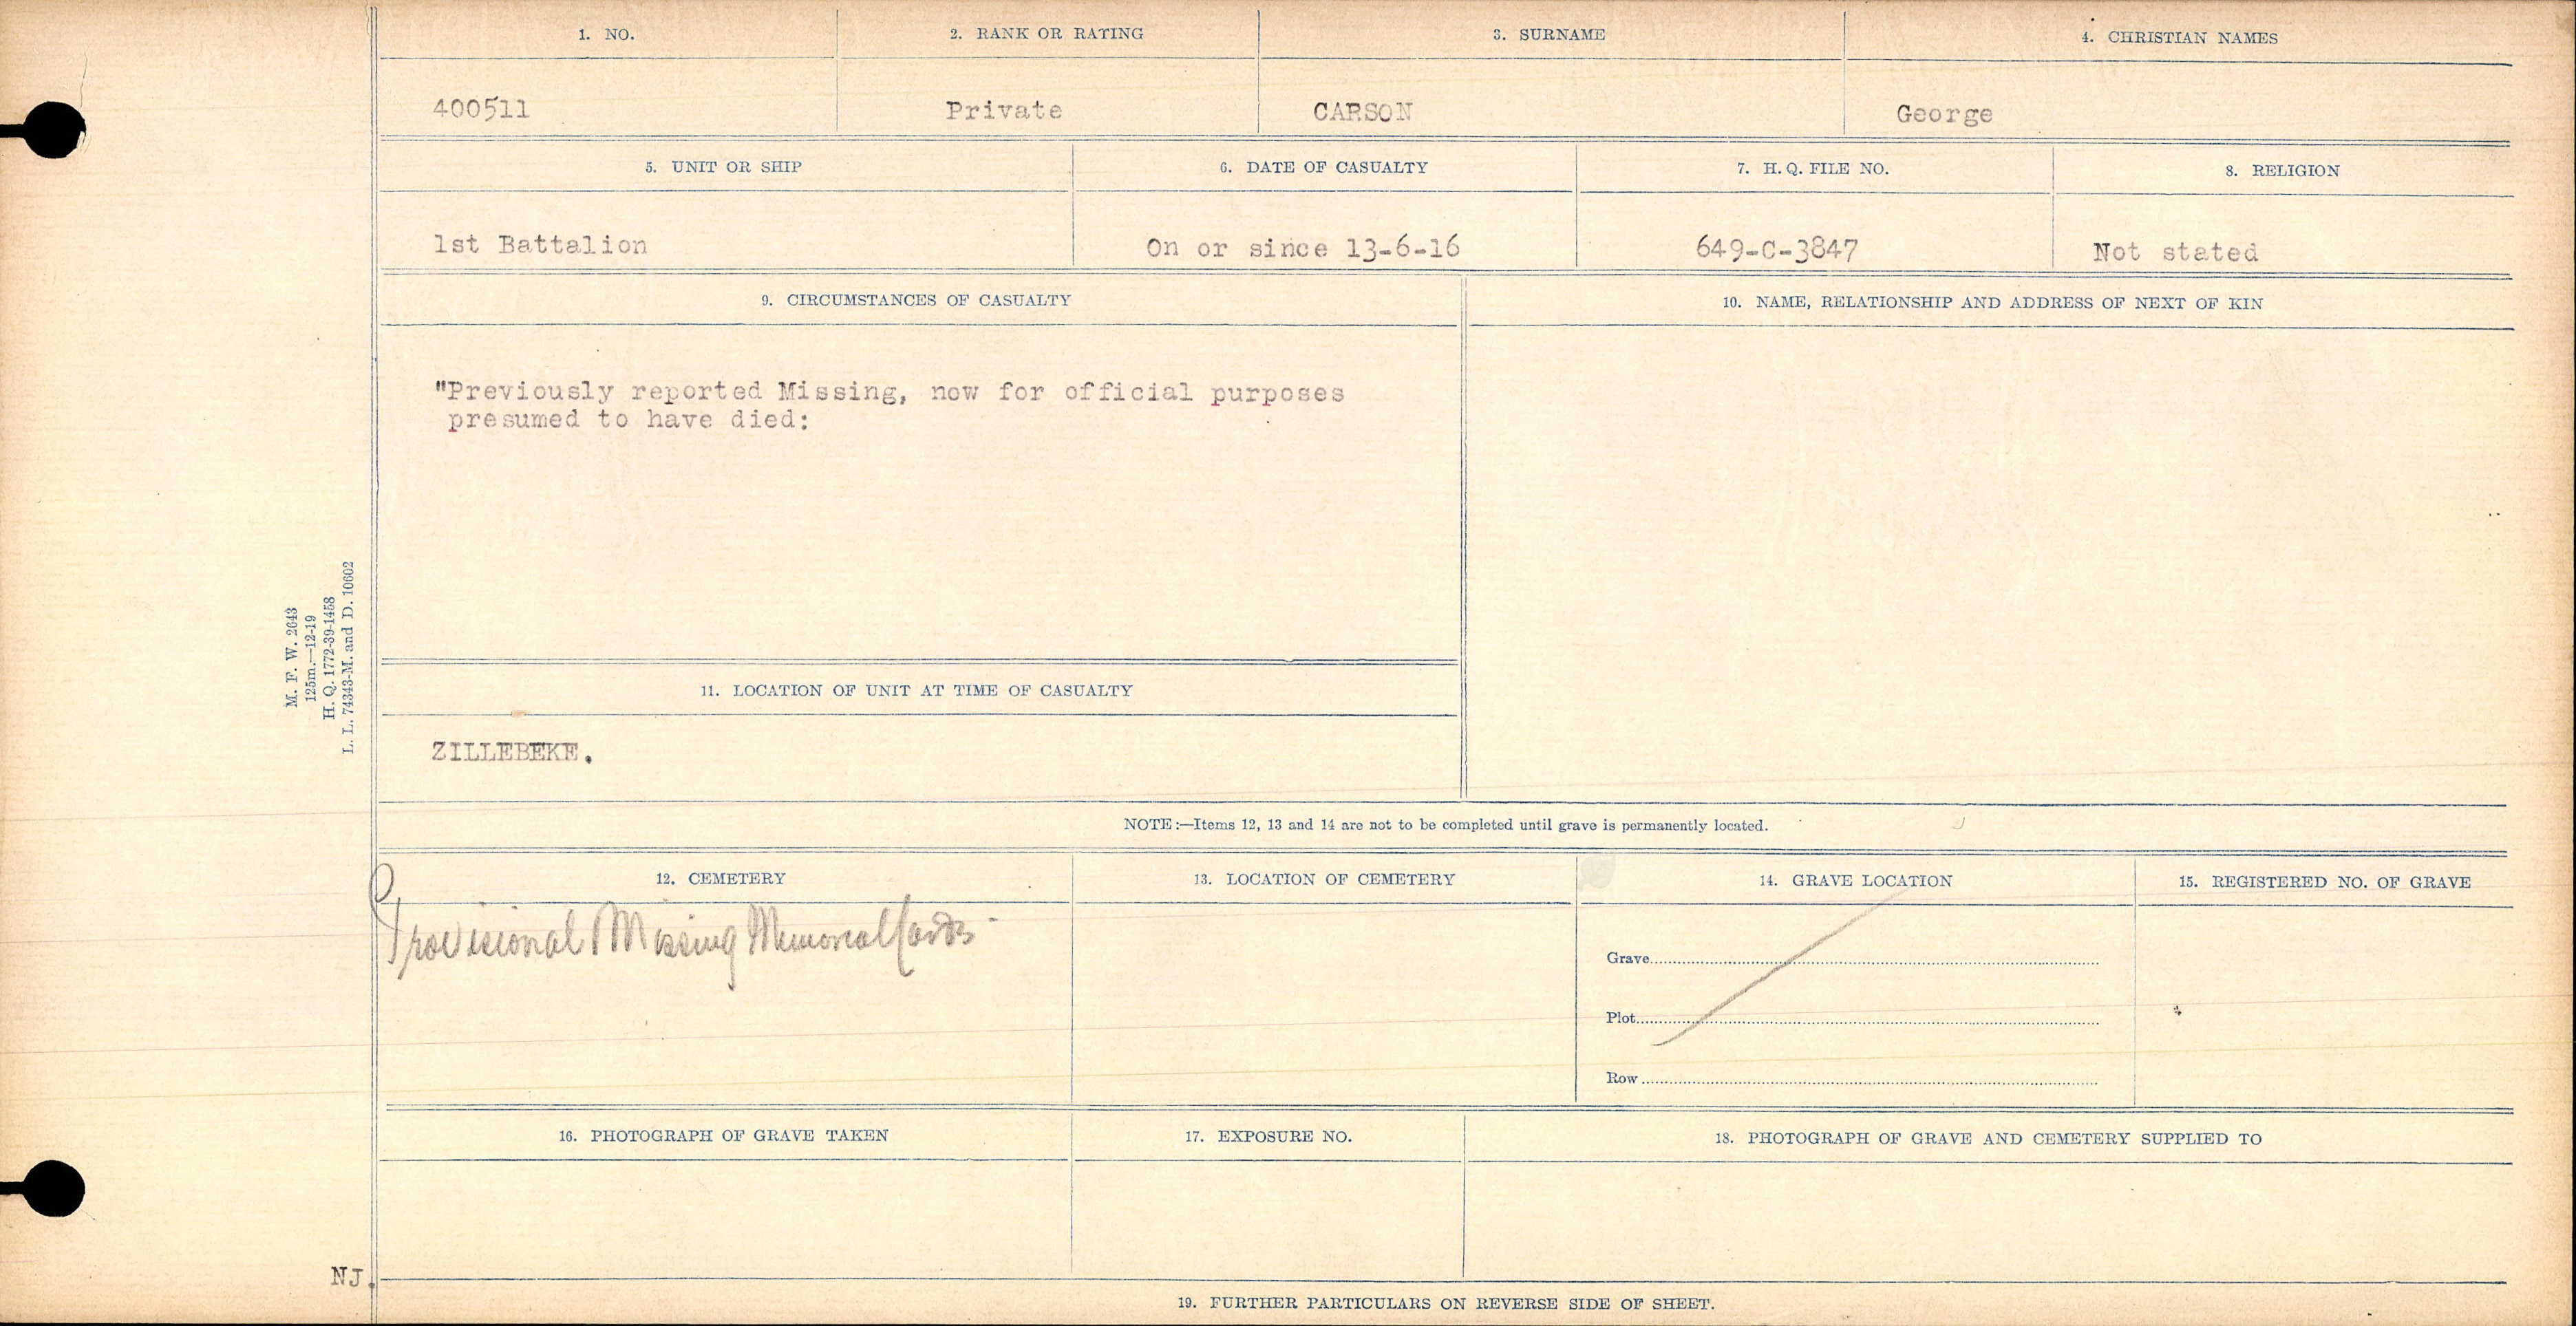 1. NO. 2. RANK OR RATING 3. SURNAME 4. CHRISTIAN NAMES
400511 Private CARSON George
5. UNIT OR SHIP 6. DATE OF CASUALTY 7. H. Q. FILE NO. 8. RELIGION
1st Battalion On or since 13-6-16 649-C-3847 Not stated
9. CIRCUMSTANCES OF CASUALTY 10. NAME, RELATIONSHIP AND ADDRESS OF NEXT OF KIN
"Previously reported Missing, now for official purposes
presumed to have died:
M. F. W. 2643
125m.—12-19
H. Q. 1772-39-1458
L. L. 74343-M. and D. 10602
11. LOCATION OF UNIT AT TIME OF CASUALTY
ZILLEBEKE.
NOTE:—Items 12, 13 and 14 are not to be completed until grave is permanently located.
12. CEMETERY 13. LOCATION OF CEMETERY 14. GRAVE LOCATION 15. REGISTERED NO. OF GRAVE
Provisional Missing Memorial Cards -
Grave
Plot
Row
16. PHOTOGRAPH OF GRAVE TAKEN 17. EXPOSURE NO. 18. PHOTOGRAPH OF GRAVE AND CEMETERY SUPPLIED TO
NJ.
19. FURTHER PARTICULARS ON REVERSE SIDE OF SHEET.